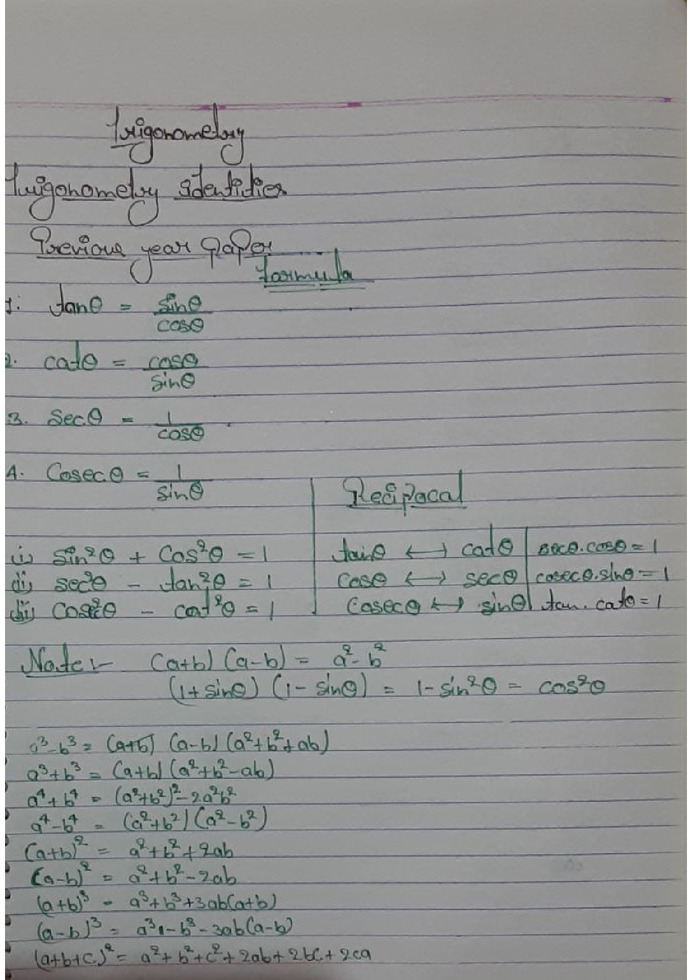 Trigonometry
Trigonometry Identities
Previous year Paper
formula
1. tanθ = sinθ/cosθ
2. cotθ = cosθ/sinθ
3. Secθ = 1/cosθ
4. Cosecθ = 1/sinθ
Reciprocal
i) sin²θ + Cos²θ = 1
ii) sec²θ - tan²θ = 1
iii) Cosec²θ - cot²θ = 1
tanθ ↔ cotθ | secθ.cosθ = 1
cosθ ↔ secθ | cosecθ.sinθ = 1
Cosecθ ↔ sinθ | tan.cotθ = 1
Note:- (a+b) (a-b) = a²-b²
(1+sinθ) (1-sinθ) = 1-sin²θ = cos²θ
a³-b³ = (a+b) (a-b) (a²+b²+ab)
a³+b³ = (a+b) (a²+b²-ab)
a⁴+b⁴ = (a²+b²)²-2a²b²
a⁴-b⁴ = (a²+b²) (a²-b²)
(a+b)² = a²+b²+2ab
(a-b)² = a²+b²-2ab
(a+b)³ = a³+b³+3ab(a+b)
(a-b)³ = a³-b³-3ab(a-b)
(a+b+c)² = a²+b²+c²+2ab+2bc+2ca